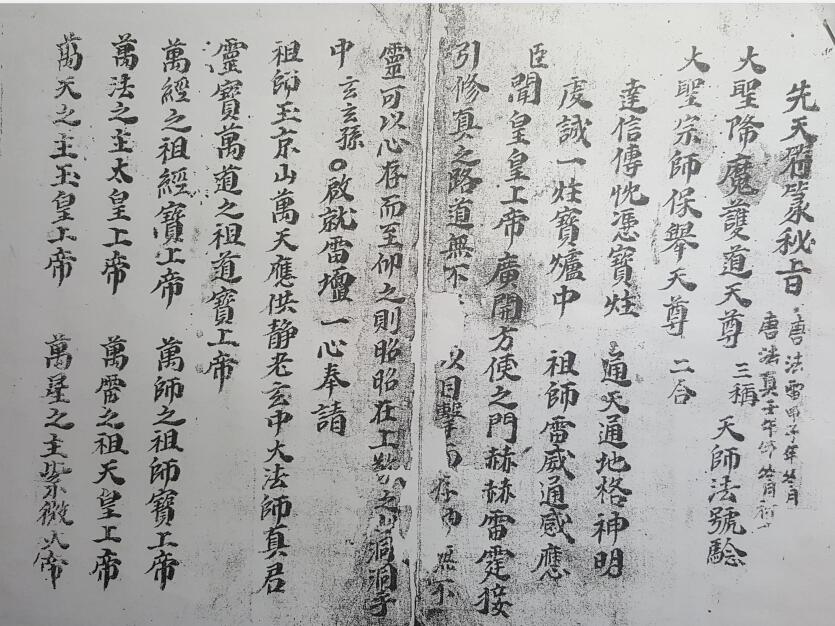 先天符篆秘旨
唐法雷甲子年 月
唐法真壬午年 月初
大聖降魔護道天尊 三稱 天師法號驗
大聖宗師保舉天尊 二合
達信傳忱憑寶炷 通天通地格神明
虔誠一炷寶爐中 祖師雷威通感應
臣聞皇皇上帝廣開方便之門赫赫雷霆接
引修真之路道無不 以目擊而存 無不
靈可以心存而至仰之則昭昭在上 之 洞洞乎
中玄玄孫〇啟就雷壇一心奉請
祖師玉京山萬天應供静老玄中大法師真君
靈寶萬道之祖道寶上帝
萬經之祖經寶上帝 萬師之祖師寶上帝
萬法之主太皇上帝 萬雷之祖天皇上帝
萬天之主玉皇上帝 萬星之主紫微大帝